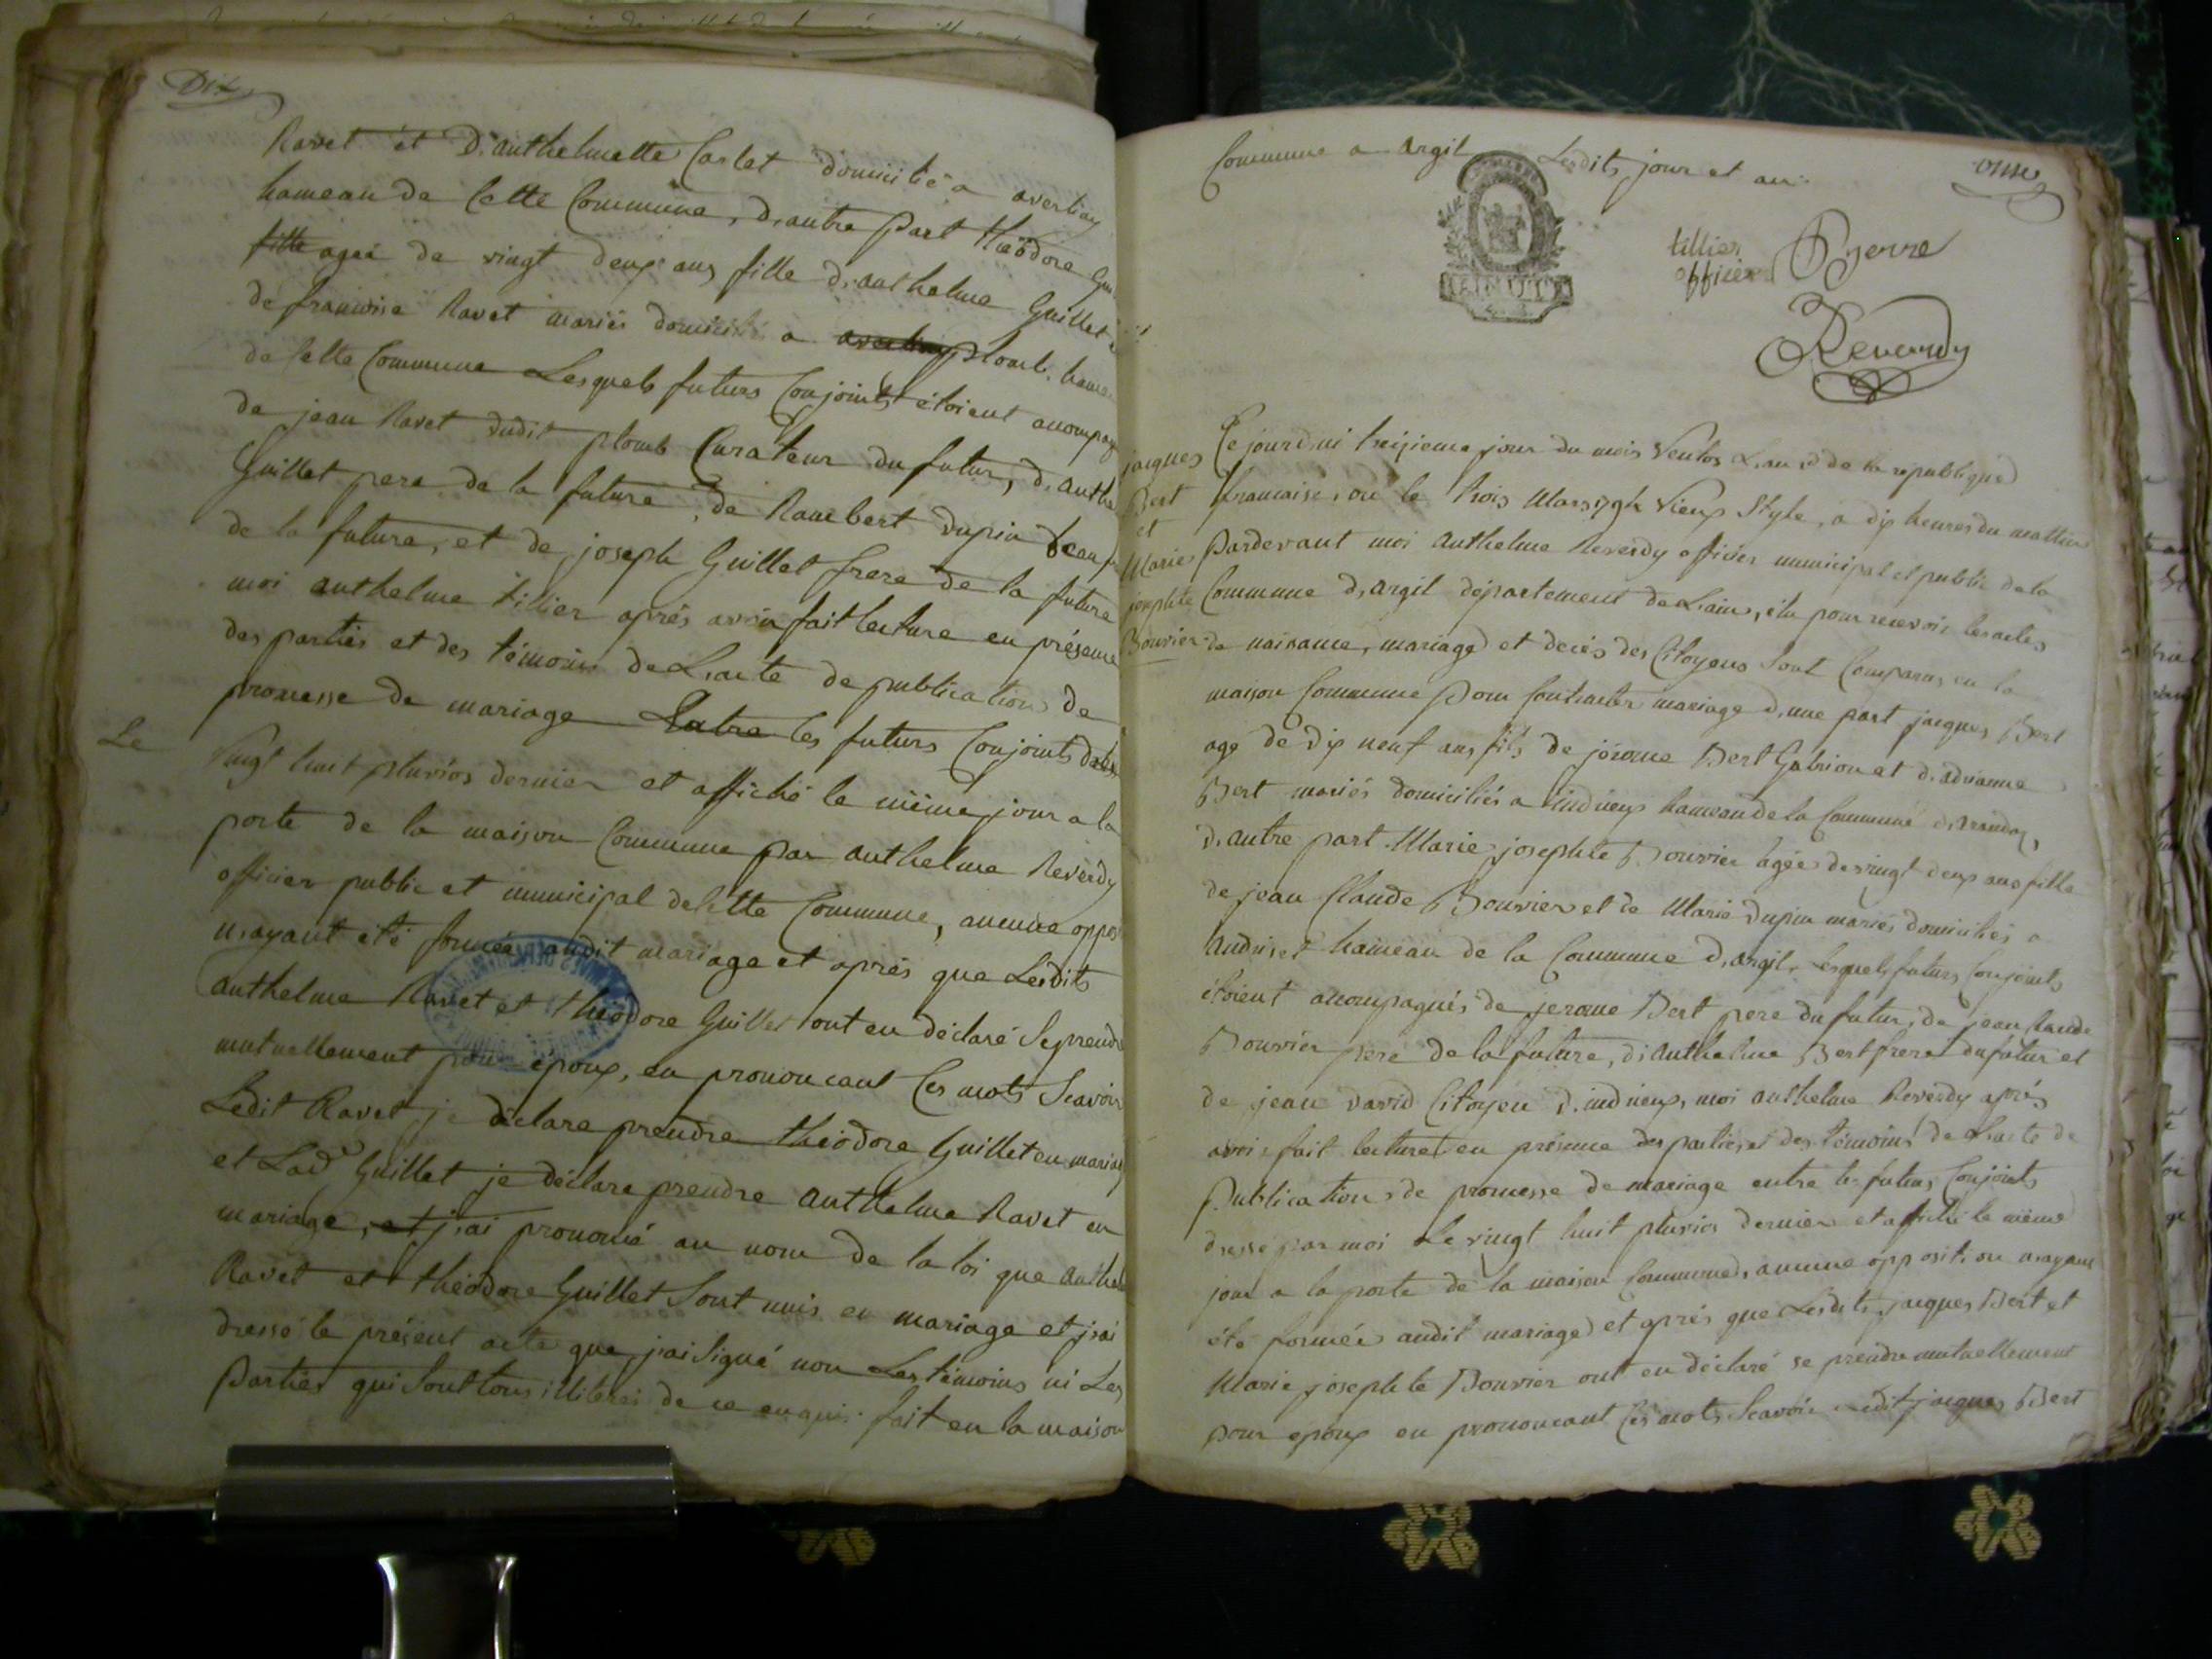 Dix
Ravet et D'anthelmette Carlet domicilié a averliaz
hameau de Cette Commune, d'autre part théodore
fille ageé de vingt deux ans fille d'anthelme Guillet
de francoise Ravet mariés domicilié a plomb.
de Cette Commune Lesquels futurs Conjoints étoient
de jean Ravet dudit plomb Curateur du futur, d'
Guillet pere de la future, de Rambert dupin beau
de la future, et de joseph Guillet frere de la future
moi anthelme tillier aprés avoir fait lecture en présence
des parties et des témoins de L'acte de publication de
promesse de mariage Entre les futurs Conjoints
Le vingt huit pluvios dernier et affiché le même jour a la
porte de la maison Commune par anthelme Reverdy
officier public et municipal de Cette Commune, aucune
n'ayant été formée audit mariage et aprés que Lesdits
anthelme Ravet et théodore Guillet ont eu déclaré Se prendre
mutuellement pour époux, en prononcant Ces mots Scavoir
Ledit Ravet je déclare prendre théodore Guillet en mariage
et Lad.e Guillet je déclare prendre anthelme Ravet en
mariage, et j'ai prononcé au nom de la loi que
Ravet et théodore Guillet Sont unis en mariage et j'ai
dressé le présent acte que j'ai Signé non Les témoins ni Les
Parties qui Sont tous illiterés de ce enquis. fait en la maison
Commune a argil Lesdits jour et an.
onze
tillier
officier
Pierre
Reverdy
jacques
Bert
et
Marie
josephte
Bouvier
Cejourd'hui treizieme jour du mois Ventos L'an 2d de la republique
francaise, ou le trois Mars 1794 Vieux Style, a dix heures du mattin
Pardevant moi anthelme Reverdy officier municipal et public de la
Commune d'argil département de L'ain, élu pour recevoir les actes
de naisance, mariage et decés des Citoyens Sont Comparus en la
maison Commune pour Contracter mariage d'une part jacques Bert
agé de dix neuf ans fils de jérome Bert Gabrion et d'adrianne
Bert mariés domiciliés a indrieux hameau de la Commune
d'autre part Marie josephte Bouvier agée de vingt deux ans fille
de jean Claude Bouvier et de Marie dupin mariés domiciliés a
hameau de la Commune d'argil, Lesquels futurs Conjoints
étoient accompagnés de jerome Bert pere du futur, de jean Claude
Bouvier pere de la future, d'anthelme Bert frere du futur et
de jean david Citoyen d'indrieux, moi anthelme Reverdy aprés
avoir fait lecture en présence des parties, et des témoins de L'acte de
Publication de promesse de mariage entre les futurs Conjoints
dressé par moi Le vingt huit pluvios dernier et affiché le même
jour a la porte de la maison Commune, aucune opposition n'ayant
été formée audit mariage et aprés que Lesdits jacques Bert et
Marie josephte Bouvier ont eu déclaré se prendre mutuellement
pour epoux en prononcant Ces mots Scavoir Ledit jacques Bert